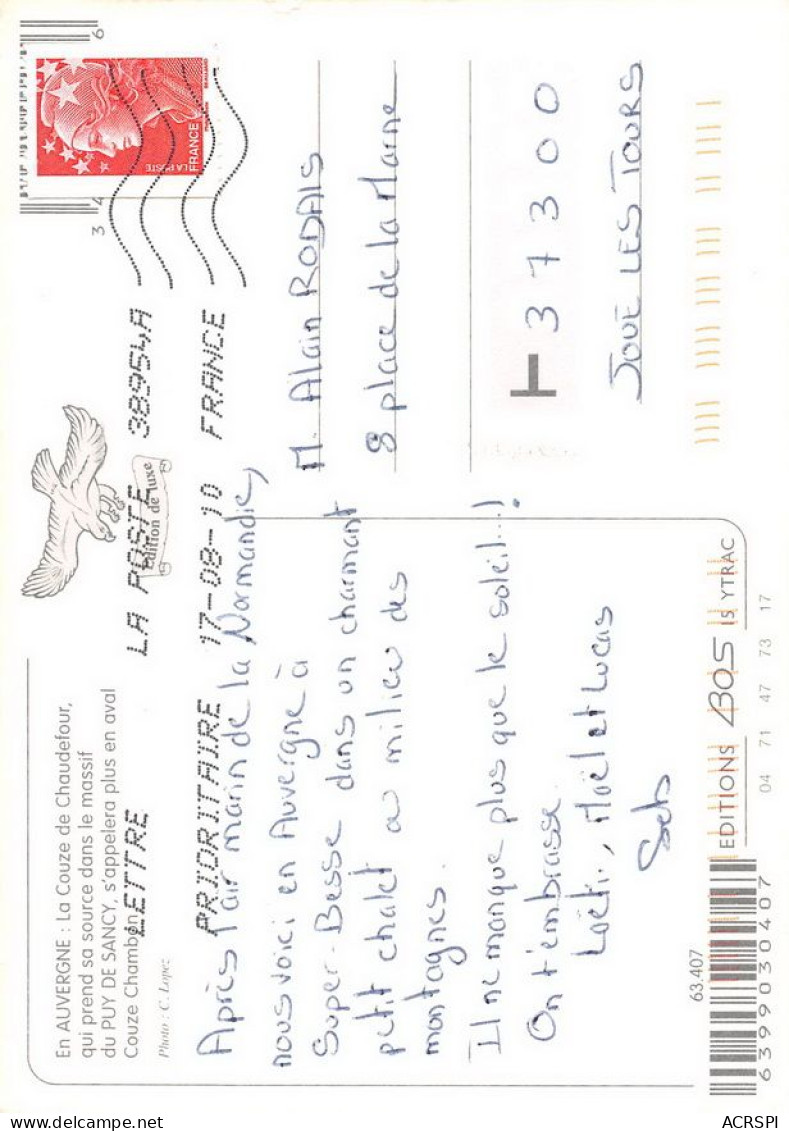 En AUVERGNE : La Couze de Chaudefour,
qui prend sa source dans le massif
du PUY DE SANCY, s'appelera plus en aval
Couze Chambon
Photo : C. Lopez
édition de luxe
LETTRE
PRIORITAIRE
LA POSTE 38954A
17-08-10 FRANCE
34
6
LA POSTE
FRANCE
Après l'air marin de la Normandie,
nous voici en Auvergne à
Super-Besse dans un charmant
petit chalet au milieu des
montagnes.
Il ne manque plus que le soleil...!
On t'embrasse.
Maël et Lucas
Seb
M. Alain RODAIS
8 place de la Marne
37300
JOUÉ LES TOURS
63.407
EDITIONS BOS 15 YTRAC
04 71 47 73 17
6399030407
ACRSPI